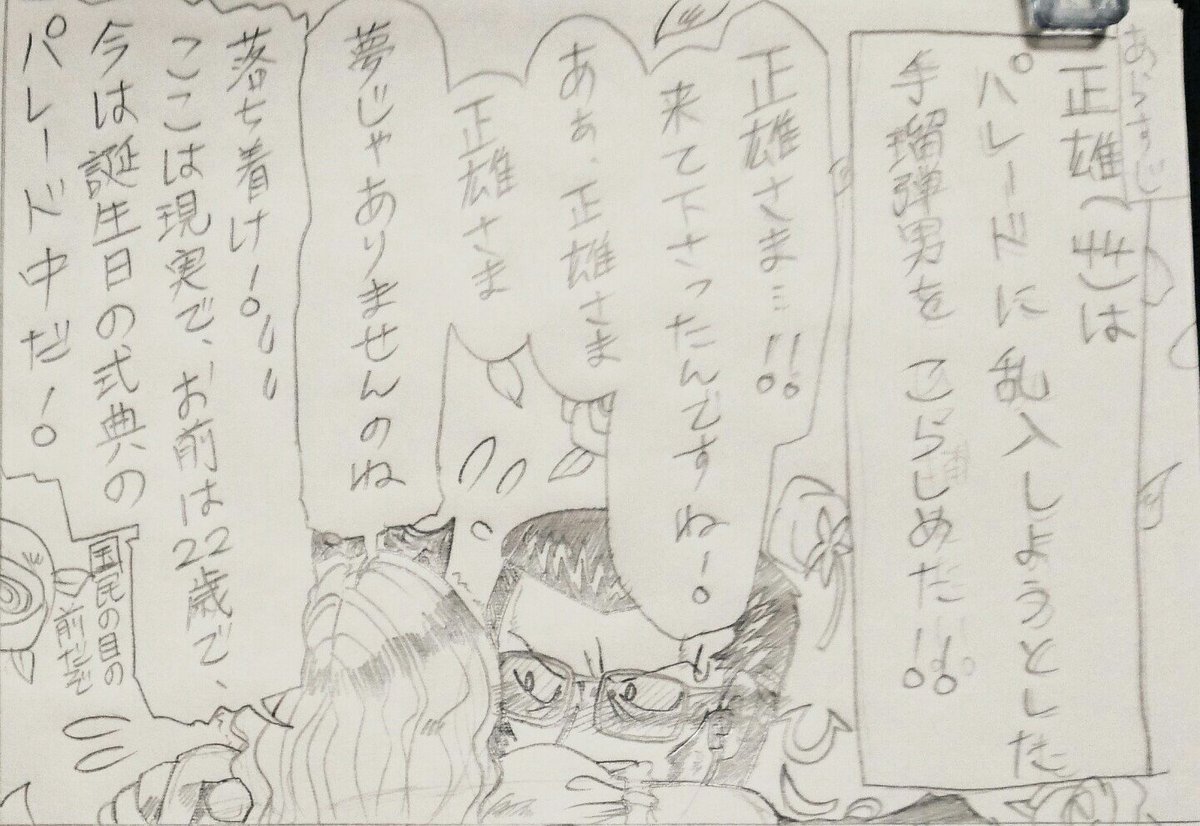 あらすじ
正雄(艸)は
パレードに乱入しようとした
手瑠弾男をこらしめた!!
正雄さま…!!
来て下さったんですねー。
あぁ、正雄さま
正雄さま
夢じゃありませんのね
落ち着けー!!
ここは現実で、お前は22歳で、
今は誕生日の式典の
パレード中だー!
国民の目の
前だぞ